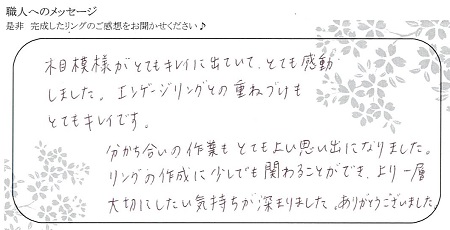 職人へのメッセージ
是非 完成したリングのご感想をお聞かせください♪
相模様がとてもキレイに出ていて、とても感動
しました。エンゲージリングとの重ねづけも
とてもキレイです。
分かち合いの作業もとてもよい思い出になりました。
リングの作成に少しでも関わることができ、より一層
大切にしたい気持ちが深まりました。ありがとうございました